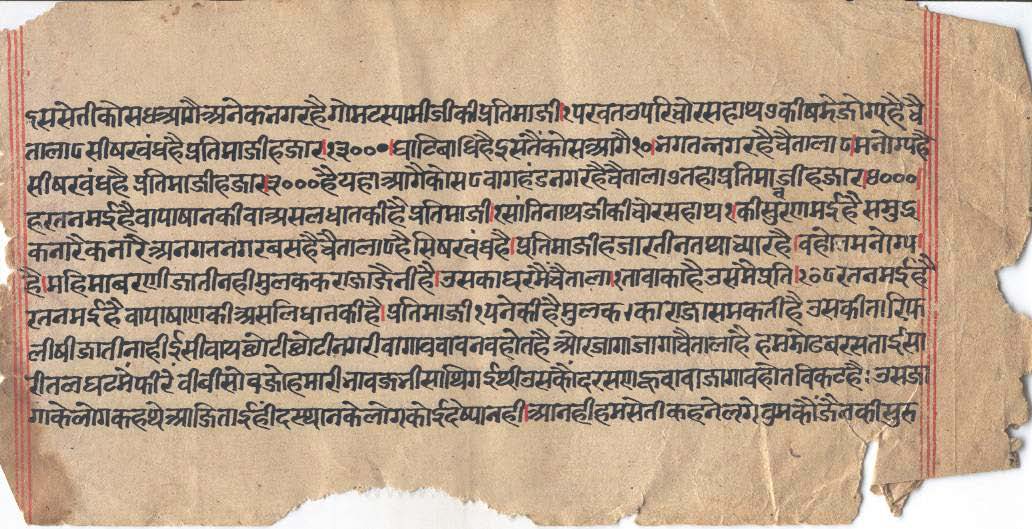 इससेतीकोसधआगैअनेकनगरहैगोमटस्वामीजीकीप्रतिमाजी।१परवतउपरिचोरसहाथ७कीषमेजोग्पहैचै
तालाएसीषरवंधहैप्रतिमाजीहजार१३०००।घाटिबाधिहैइसतैंकोसआगै१०।मगतननगरहैचैताला१।मनोग्पहै
सीषरवंधहै प्रतिमाजीहजार३०००हैयहाआगैकोस८वागहंडनगरहैचैताला७तहाप्रतिमाजीहजार४०००
हरतनमईहैवापाषानकीवाअसलधातकीहैप्रतिमाजी।१सांतिनाथजीकीचोरसहाथ१कीसुरणमईहै समुद्र
कनारैकनारैअनगतनगरबसहैचैतालाएहैसिषरवंधहै।प्रतिमाजीहजारतीनतथाच्यारहै।वहोतमनोग्प।
है।महिमाबरणीजातीनहीमुलककराजाजैनीहै।उसकाघरमैचैताला।१तावाकाहैउसमेप्रति।१०८रतनमईहै
रतनमईहै वापाषाणकीअसलिधानकीहै।प्रतिमाजी१पनेकीहैमुलक।काराजासमकतीहैउसकीतारिफ
लीषीजातीनाहीईसीवायछोटीछोटीनगरीवागावबावनवहोतहै ओरजागाजागाचैतालाहै हमफोटबरसताईसा
रीतलघटमेंफीरे वीबीसोबजोहमारीभावजभीसाथिगईथीउसकौंदरसणहुवावाजागावहोतविकटहै।उसजा
गाकेलोगकहथेआजिताईहींदस्थानकेलोगकोईदेष्यानही।आनहीहमसेतीकहनेलगेतुमकौंजैनकीसुरु